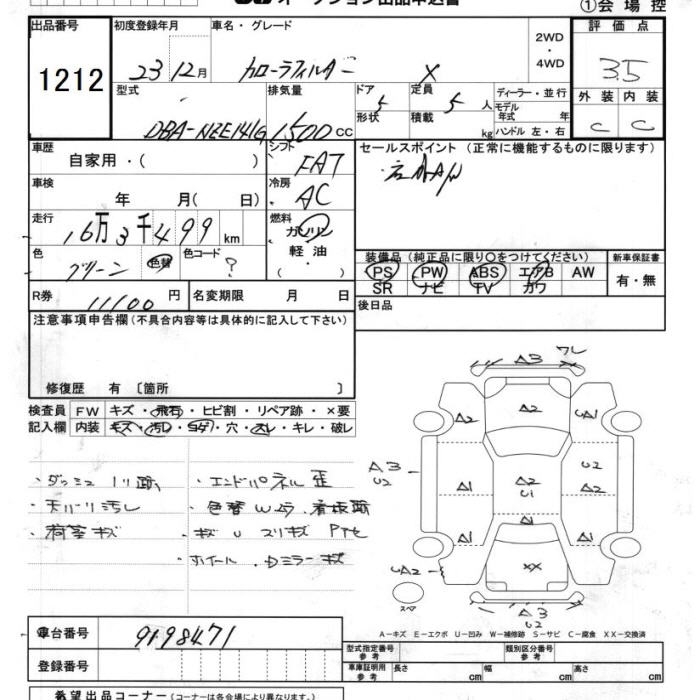 オークション出品申込書
①会場控
出品番号 初度登録年月 車名・グレード 評価点
1212 23 12月 カローラフィルダー X 2WD・4WD 3.5
型式 排気量 ドア 定員 ディーラー・並行 外装 内装
DBA-NZE141G 1500 CC 5 5 人 モデル年式 年 C C
形状 積載 kg ハンドル 左・右
車歴 シフト セールスポイント (正常に機能するものに限ります)
自家用・( ) FAT
車検 冷房
年 月( 日) AC
走行 燃料
16万3千499 km ガソリン
軽油
・
( )
色 色替 色コード
グリーン ?
装備品 (純正品に限り○をつけてください) 新車保証書
PS PW ABS エアB AW 有・無
SR ナビ TV カワ
R券 11100 円 名変期限 月 日
後日品
注意事項申告欄(不具合内容等は具体的に記入して下さい)
修復歴 有 〔箇所 〕
検査員 FW キズ・飛石・ヒビ割・リペア跡・×要
記入欄 内装 キズ・汚レ・コゲ・穴・スレ・キレ・破レ
・ダッシュ ノリ跡 ・エンドパネル歪
・天バリ汚レ ・色替Wムラ 看板跡
・荷室キズ ・キズ U スリキズ
・ホイール・Dミラーキズ
A3 ワレ
A2 A2 UA1
A3
U2
A1 A2 U2
U1 A2
A1
A1 A1
UA2 XX
スペア
A3
U2
A−キズ E−エクボ U−凹み W−補修跡 S−サビ C−腐食 XX−交換済
車台番号 9198471
登録番号
型式指定番号 参考 類別区分番号 参考
車庫証明用 参考 長さ cm 幅 cm 高さ cm
希望出品コーナー(コーナーは各会場により異なります。)